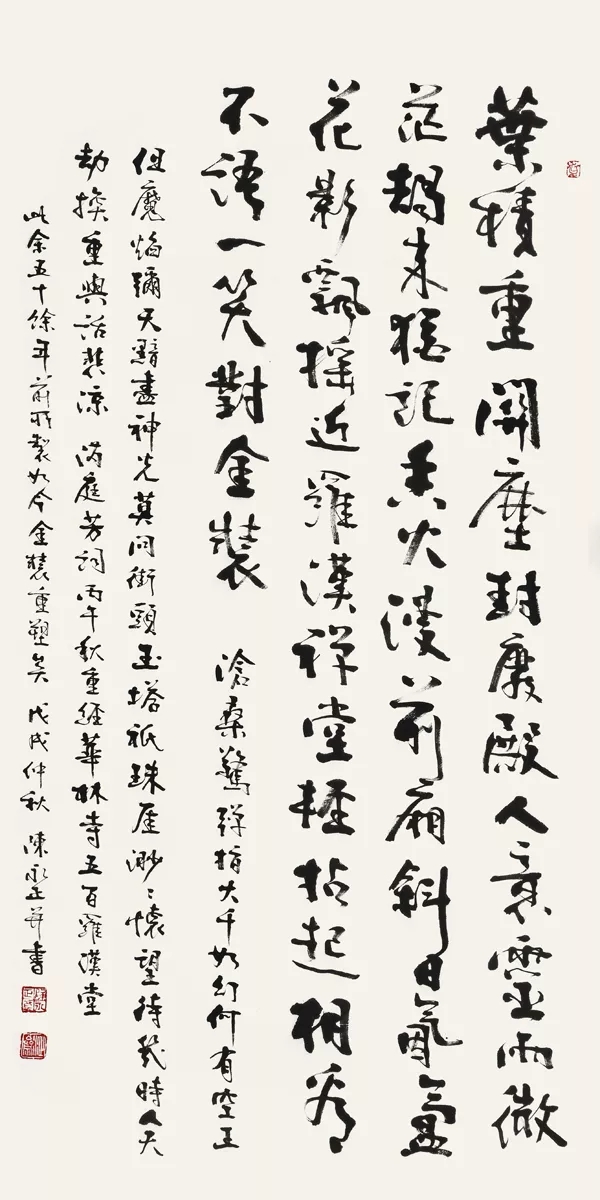 葉積重關塵封廢殿人哀靈雨微
茫朅來猶記香火漫前廂斜日氤氳
花影飄搖近羅漢禪堂輕拈起相看
不語一笑對金裝 滄桑驚彈指大千如幻何有空王
但魔焰彌天黯盡神光莫問街頭玉塔祇珠厓渺〻懷望待幾時人天
劫換重與話悲涼 滿庭芳詞丙午秋重經華林寺五百羅漢堂
此余五十餘年前所製如今金裝重塑矣 戊戌仲秋 陳永正并書